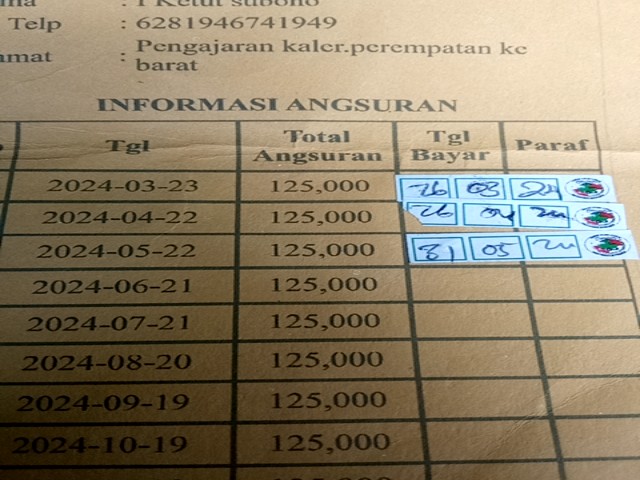 : I Ketut subono
Telp : 6281946741949
amat : Pengajaran kaler.perempatan ke
barat
INFORMASI ANGSURAN
Tgl Total Angsuran Tgl Bayar Paraf
2024-03-23 125,000 26 03 24
2024-04-22 125,000 26 04 24
2024-05-22 125,000 31 05 24
2024-06-21 125,000
2024-07-21 125,000
2024-08-20 125,000
2024-09-19 125,000
2024-10-19 125,000